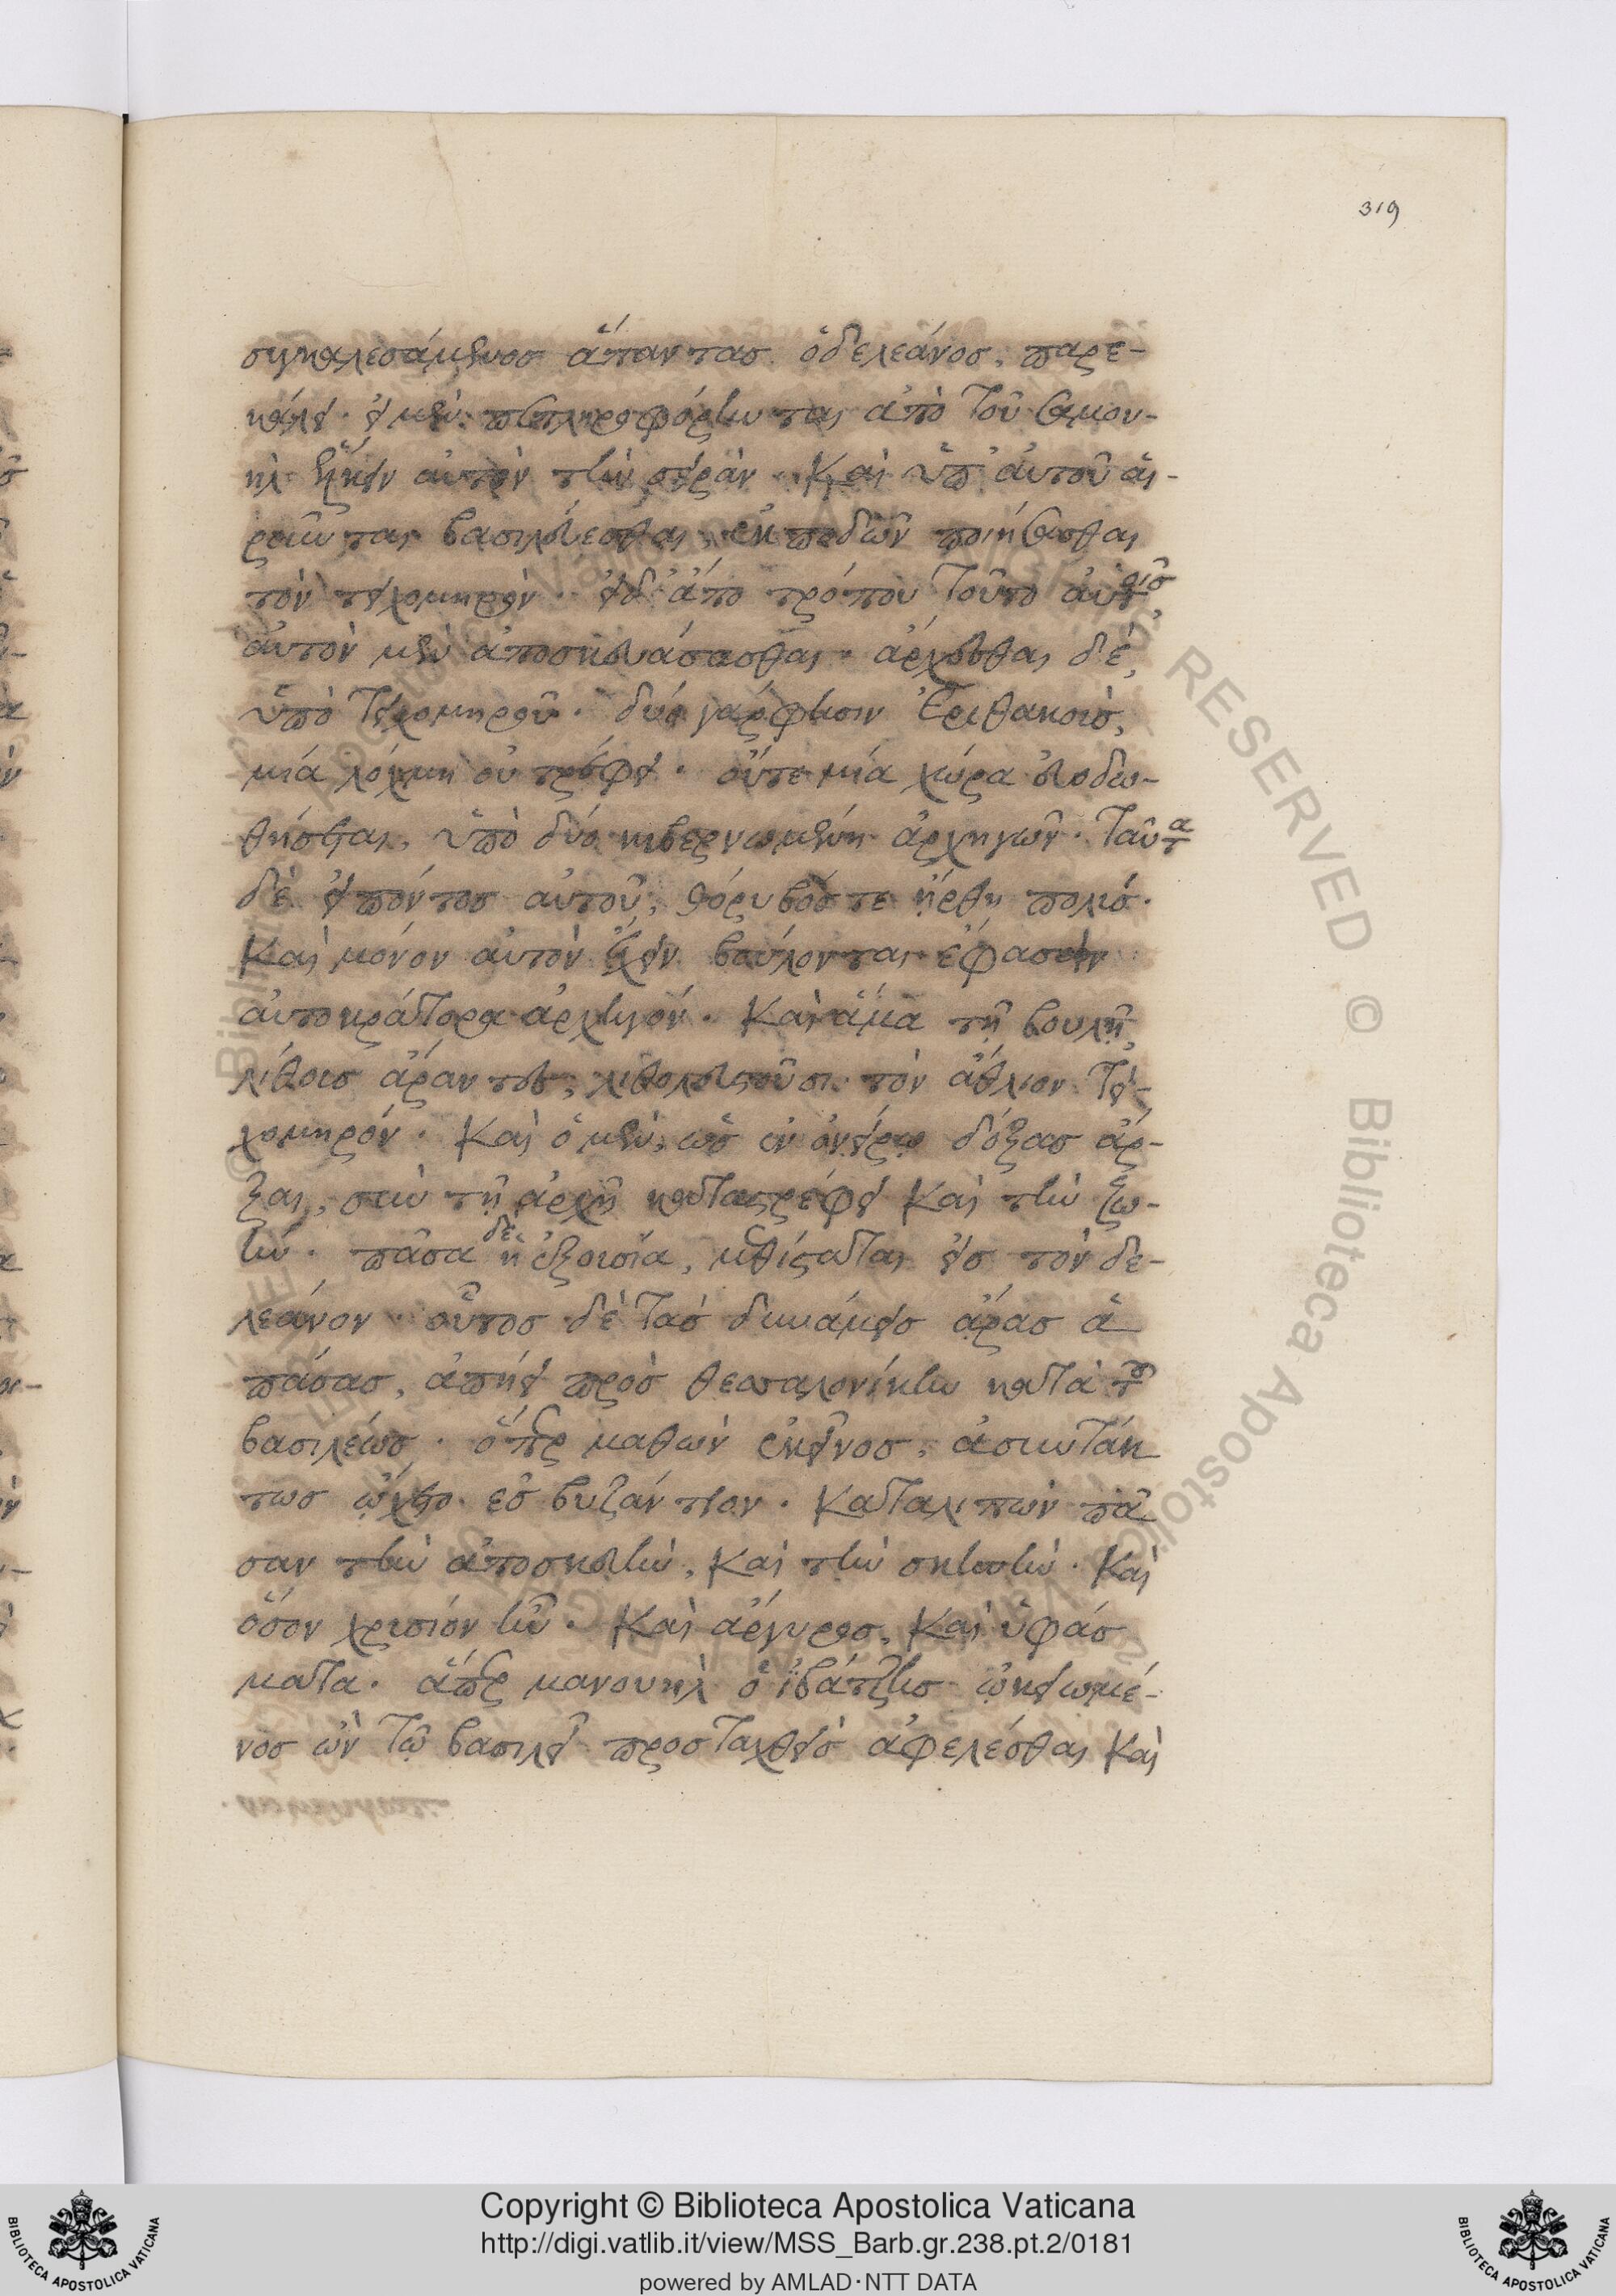 319
συγκαλεσάμενος ἅπαντας ὁ δελεάνος, παρε-
κάλει· εἰ μὲν πεπληροφόρηνται ἀπὸ τοῦ σαμου-
ὴλ ἕλκειν αὐτὸν τὴν σειράν· καὶ ὑπ' αὐτοῦ αἱ-
ροῦνται βασιλεύεσθαι, ἐκποδὼν ποιήσασθαι
τὸν τειχομηρόν· εἰ δ' ἀπο τρόπου τοῦτο αὐτοῖς,
αὐτὸν μὲν ἀποσκευάσασθαι· ἄρχεσθαι δέ,
ὑπὸ Τειχομηροῦ· δύο γάρ φησιν Ἐριθακοὺς,
μία λόχμη οὐ τρέφει· οὔτε μία χώρα εὐοδω-
θήσεται, ὑπὸ δύο κυβερνωμένη ἀρχηγῶν· Ταῦτα
δὲ εἰπόντος αὐτοῦ, θόρυβός τε ἤρθη πολύς·
Καὶ μόνον αὐτὸν ἔχειν βούλονται ἔφασαν
αὐτοκράτορα ἀρχηγόν· Καὶ ἅμα τῇ βουλῇ,
λίθους ἄραντες, λιθολευστοῦσι τὸν ἄθλιον Τει-
χομηρόν· Καὶ ὁ μὲν, ὡς ἐν ὀνείρῳ δόξας ἄρ-
ξαι, σὺν τῇ ἀρχῇ καταστρέφει Καὶ τὴν ζω-
ήν· πᾶσα δὲ ἡ ἐξουσία, μεθίσταται εἰς τὸν δε-
λεάνον· οὗτος δὲ τὰς δυνάμεις ἄρας ἁ
πάσας, ἀπῄει πρὸς θεσσαλονίκην κατὰ τοῦ
βασιλέως· ὅπερ μαθὼν ἐκεῖνος, ἀσυντάκ
τως ᾤχετο ἐς βυζάντιον· Καταλιπὼν πᾶ
σαν τὴν ἀποσκευὴν, Καὶ τὴν σκηνὴν· Καὶ
ὅσον χρυσίον ἦν· Καὶ ἄργυρος, Καὶ ὑφάσ
ματα· ἅπερ μανουὴλ ὁ ἰβάτζης ᾠκειωμέ-
νος ὢν τῷ βασιλεῖ προσταχθεὶς ἀφελέσθαι Καὶ
Copyright © Biblioteca Apostolica Vaticana
http://digi.vatlib.it/view/MSS_Barb.gr.238.pt.2/0181
powered by AMLAD·NTT DATA